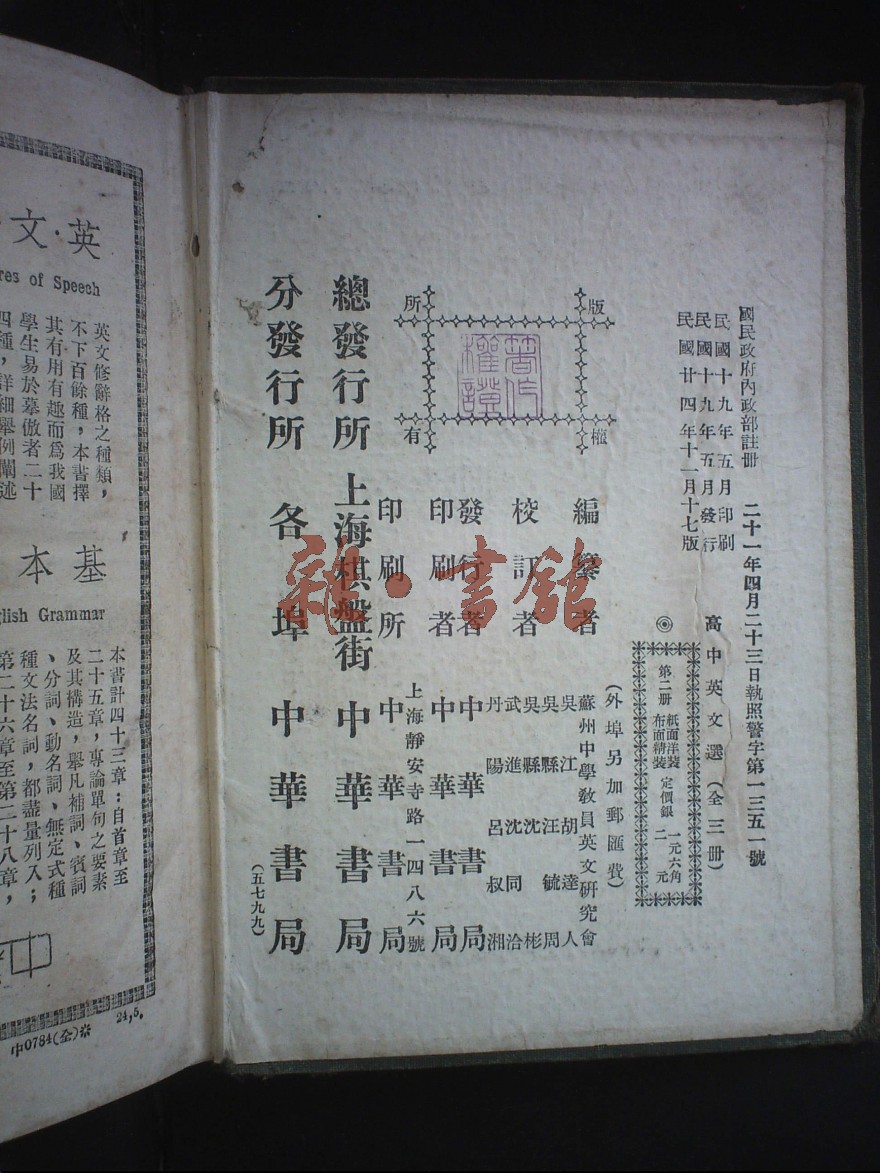 國民政府內政部註冊 二十一年四月二十三日執照警字第一三五一號
民國十九年五月印刷
民國十九年五月發行
民國廿四年十一月十七版
高中英文選(全三冊)
◎
第二冊 紙面洋裝 定價銀 一元六角
布面精裝 二元
(外埠另加郵匯費)
版權所有
著作權證
編纂者 蘇州中學教員英文研究會
校訂者 吳江胡達人
吳縣汪毓周
吳縣沈彬
武進沈同洽
丹陽呂叔湘
發行者 中華書局
印刷者 中華書局
印刷所 上海靜安寺路一四八六號
中華書局
總發行所 上海棋盤街 中華書局
分發行所 各埠 中華書局
(五七九九)
雜·書館
英·文
res of Speech
英文修辭格之種類,
不下百餘種,本書擇
其有用有趣而爲我國
學生易於摹倣者二十
四種,詳細舉例闡述
基本
glish Grammar
本書計四十三章;自首章至
二十五章,專論單句之要素
及其構造,舉凡補詞、賓詞
、分詞、動名詞、無定式種
種文法名詞,都盡量列入;
第二十六章至第二十八章,
中
中0784(全)※ 24,5.